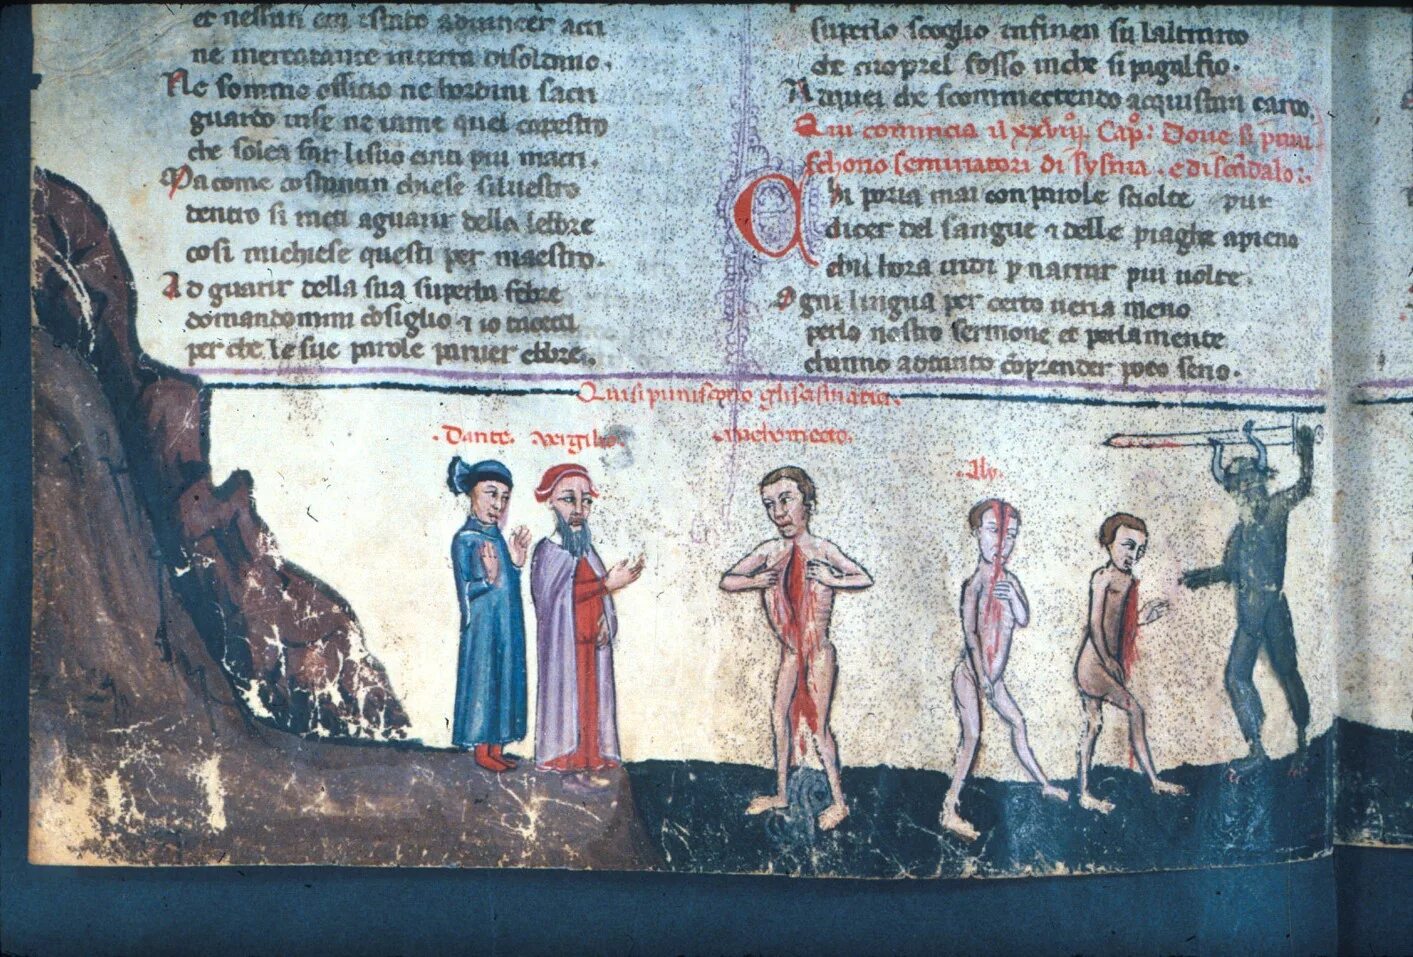 ne mercatante in terra di soldano.
Ne sommo officio ne hordini sacri
guardo in se ne in me quel capestro
che solea far li suoi cinti piu macri.
Ma come costantin chiese silvestro
dentro si rati a guarir della lebbre
cosi mi chiese questi per maestro.
Ad guarir della sua superba febre
domandommi cōsiglio ⁊ io tacetti
per che le sue parole parver ebbre.
super lo scoglio infinen su laltrarco
che cuoprel fosso in che si paga l fio.
A quei che scommettendo acquistan carco.
Qui comincia il xxviij. Cap. Dove si puni
schono seminatori di sysma. e di scādalo.
Chi poria mai con parole sciolte pur
dicer del sangue ⁊ delle piaghe apieno
chi hora vidi p narrar piu volte.
Ogni lingua per certo veria meno
per lo nostro sermone et per la mente
channo a tanto cōprender poco seno.
Qui si puniscono gli
.Dante. Vergilio
Machometto.
.Aly.